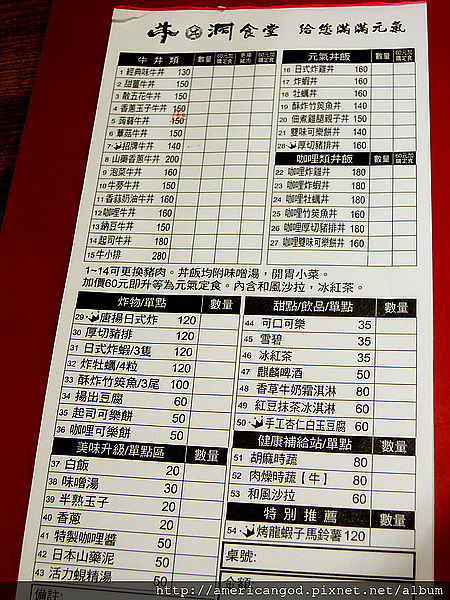 牛 洞 食堂 給您滿滿元氣
牛 丼 類 數量 60元加購定食 更換豬肉 60元加購定食
1 經典味牛丼 130
2 甜薑牛丼 150
3 散五花牛丼 150
4 香蔥玉子牛丼 150
5 蒟蒻牛丼 150
6 蕈菇牛丼 150
7 招牌牛丼 140
8 山藥香蔥牛丼 200
9 泡菜牛丼 160
10 牛蒡牛丼 150
11 香蒜奶油牛丼 160
12 咖哩牛丼 160
13 納豆牛丼 150
14 起司牛丼 180
15 牛小排 280
元氣丼飯 數量 60元加購定食
16 日式炸雞丼 160
17 炸蝦丼 160
18 牡蠣丼 160
19 酥炸竹筴魚丼 140
20 佃煮雞腿親子丼 150
21 雙味可樂餅丼 140
28 厚切豬排丼 160
咖哩類丼飯 數量 60元加購定食
22 咖哩炸雞丼 180
23 咖哩炸蝦丼 180
24 咖哩牡蠣丼 180
25 咖哩竹筴魚丼 160
26 咖哩厚切豬排丼 180
27 咖哩雙味可樂餅丼 160
1~14可更換豬肉。丼飯均附味噌湯，開胃小菜。
加價60元即升等為元氣定食。內含和風沙拉，冰紅茶。
炸物/單點 數量
29 唐揚日式炸 120
30 厚切豬排 120
31 日式炸蝦/3隻 120
32 炸牡蠣/4粒 120
33 酥炸竹筴魚/3尾 100
34 揚出豆腐 60
35 起司可樂餅 50
36 咖哩可樂餅 50
美味升級/單點區 數量
37 白飯 20
38 味噌湯 30
39 半熟玉子 20
40 香蔥 20
41 特製咖哩醬 50
42 日本山藥泥 50
43 活力蜆精湯 50
備註:
甜點/飲品/單點 數量
44 可口可樂 35
45 雪碧 35
46 冰紅茶 35
47 麒麟啤酒 50
48 香草牛奶霜淇淋 80
49 紅豆抹茶冰淇淋 60
50 手工杏仁白玉豆腐 60
健康補給站/單點 數量
51 胡麻時蔬 80
52 肉燥時蔬【牛】 80
53 和風沙拉 60
特別推薦 數量
54 烤龍蝦子馬鈴薯 120
桌號:
金額:
http://americangod.pixnet.net/album